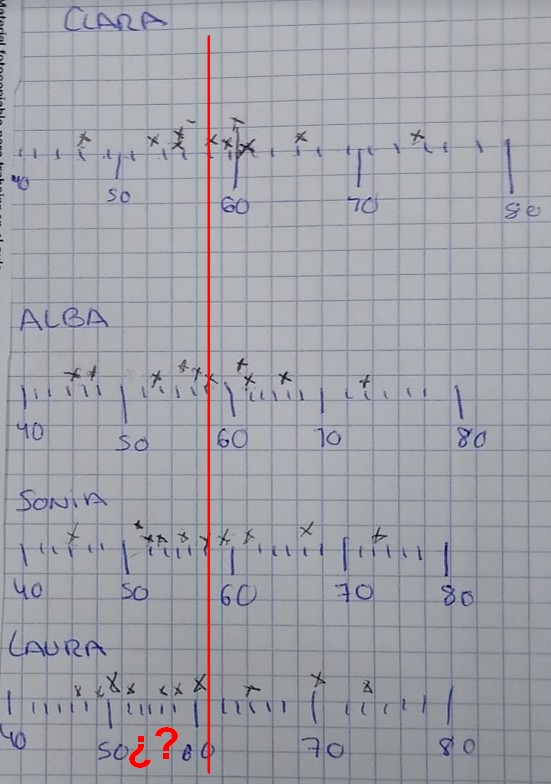 CLARA
40 50 60 70 80
ALBA
40 50 60 70 80
SONIA
40 50 60 70 80
LAURA
40 50 ¿? 60 70 80